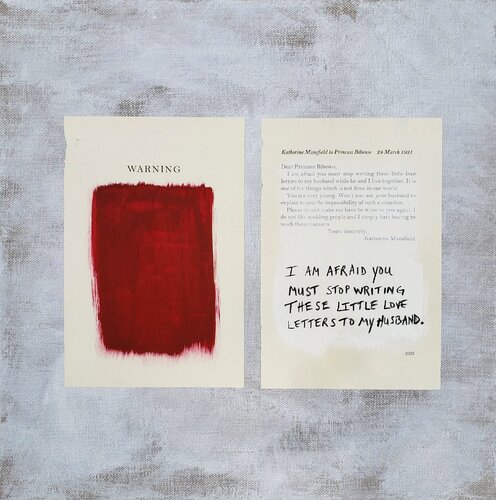 WARNING
Katherine Mansfield to Princess Bibesco 24 March 1921
Dear Princess Bibesco,
I am afraid you must stop writing these little love
letters to my husband while he and I live together. It is
one of the things which is not done in our world.
You are very young. Won't you ask your husband to
explain to you the impossibility of such a situation.
Please do not make me have to write to you again. I
do not like scolding people and I simply hate having to
teach them manners.
Yours sincerely,
Katherine Mansfield
I AM AFRAID YOU
MUST STOP WRITING
THESE LITTLE LOVE
LETTERS TO MY HUSBAND.
229